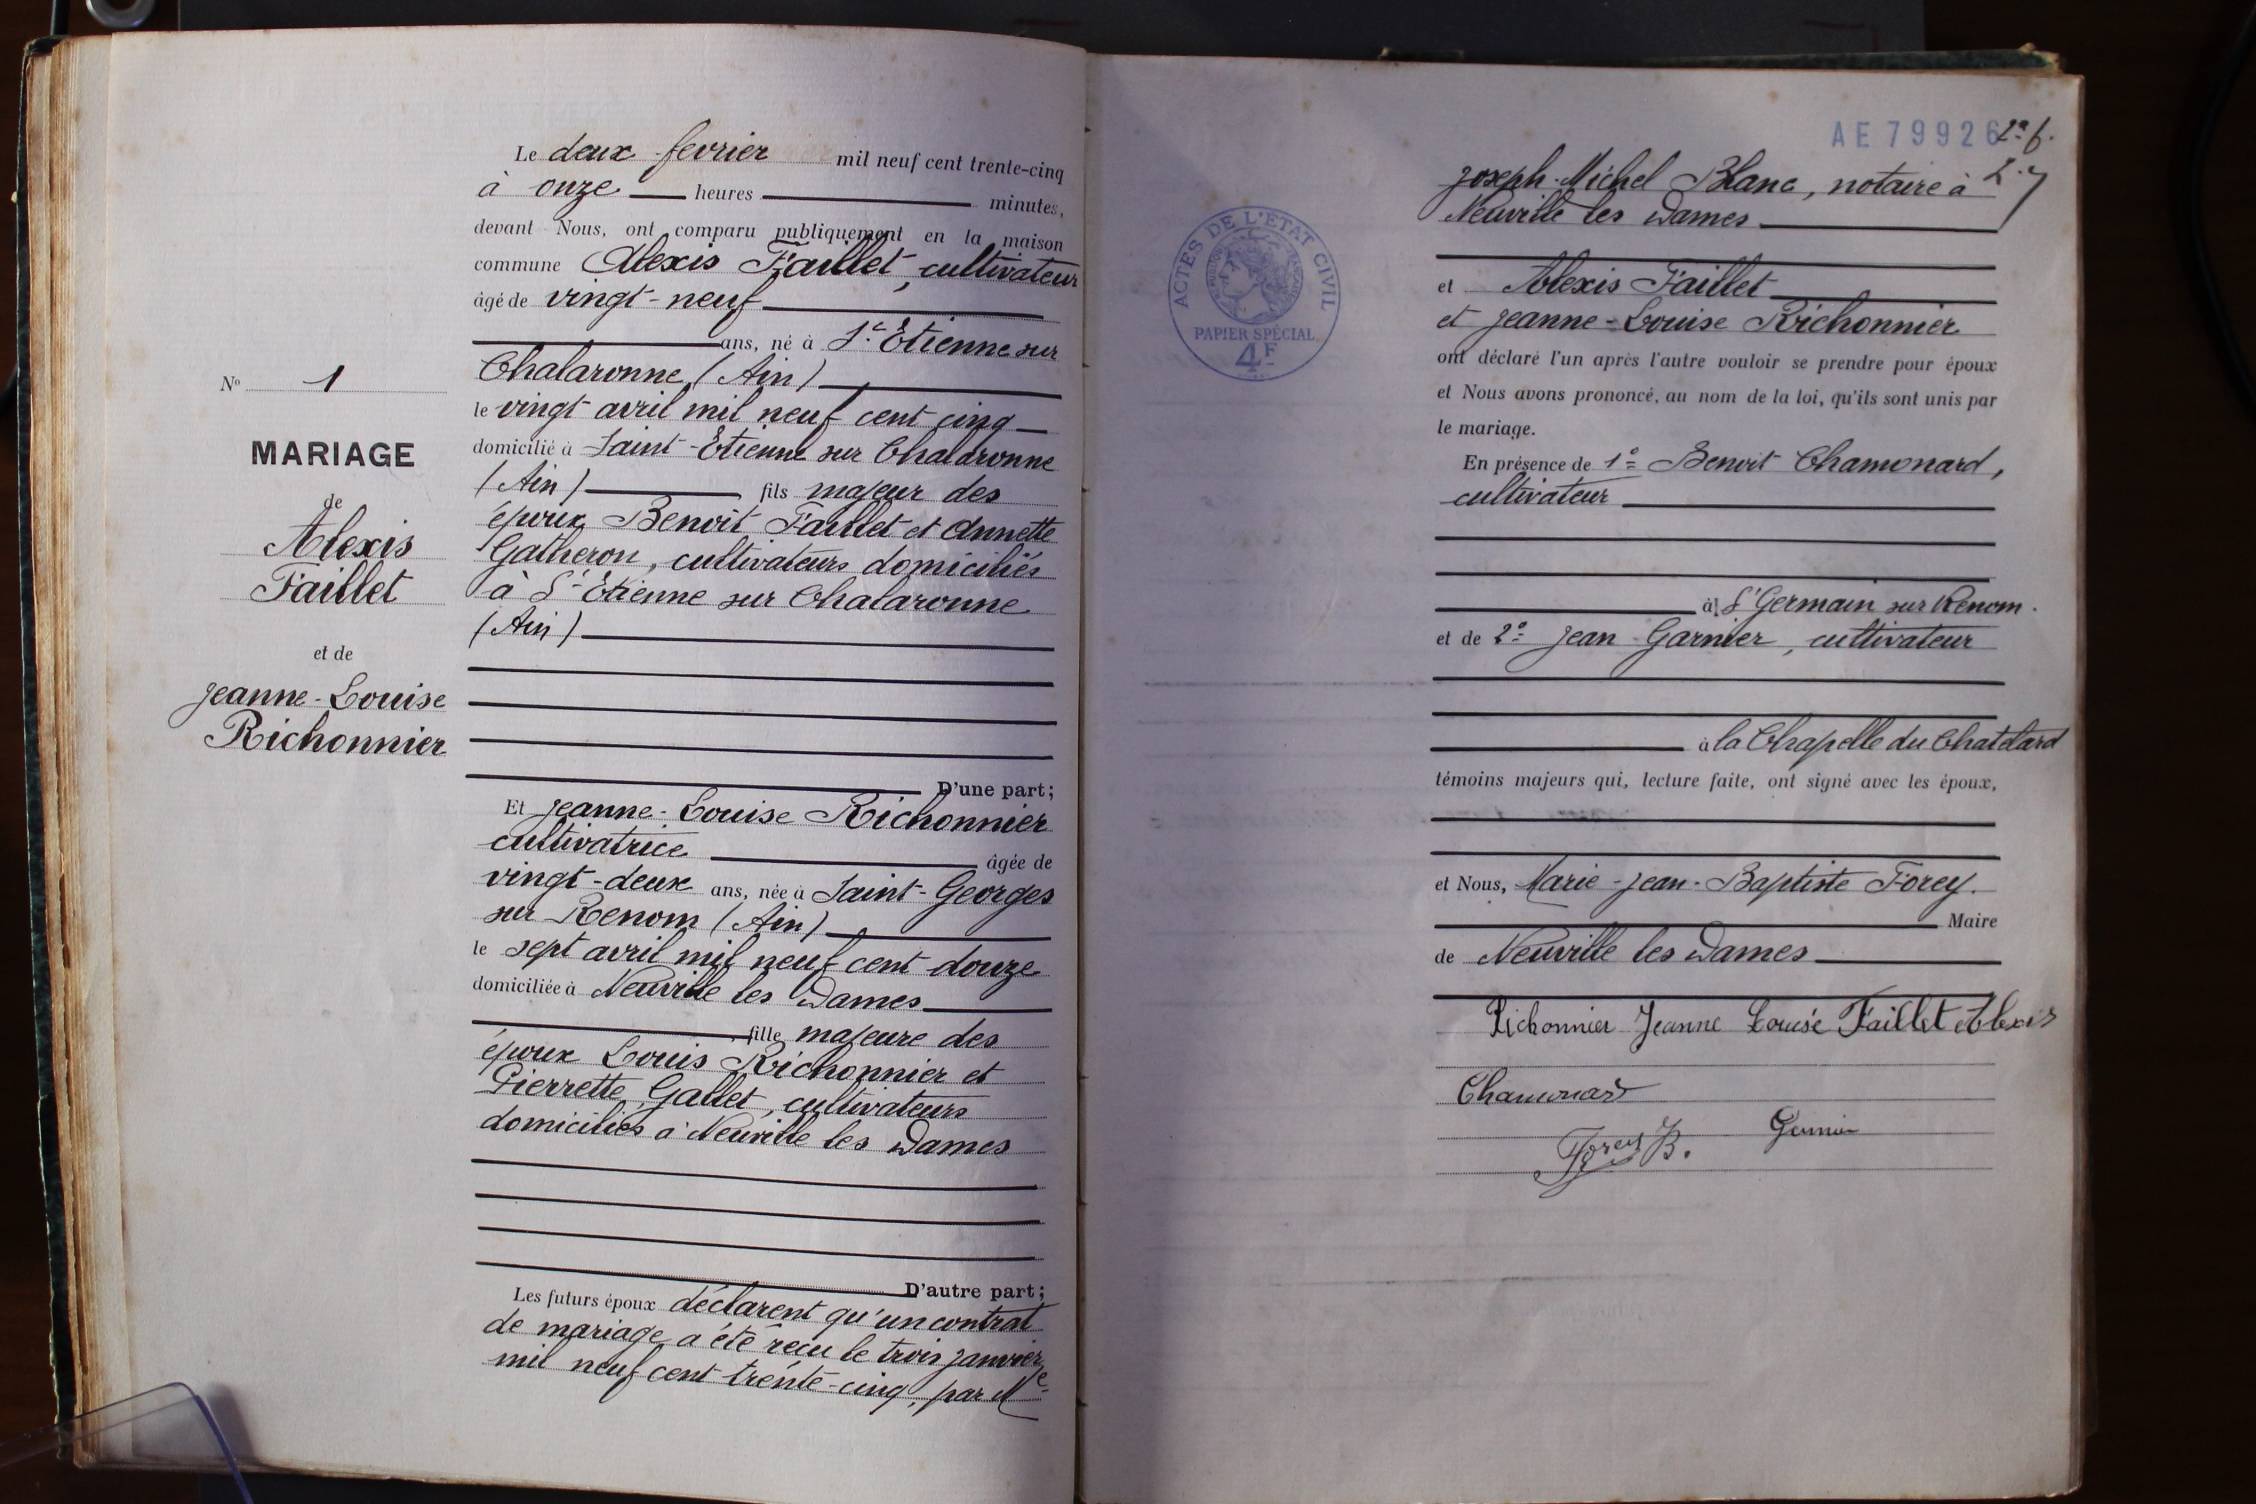 Le deux fevrier mil neuf cent trente-cinq
à onze heures minutes,
devant Nous, ont comparu publiquement en la maison
commune Alexis Faillet, cultivateur
âgé de vingt-neuf
ans, né à St. Etienne sur
Chalaronne (Ain)
le vingt avril mil neuf cent cinq
domicilié à Saint-Etienne sur Chalaronne
(Ain) fils majeur des
époux Benoît Faillet et Annette
Gatheron, cultivateurs domiciliés
à St Etienne sur Chalaronne
(Ain)
D'une part;
Et Jeanne-Louise Richonnier
cultivatrice âgée de
vingt-deux ans, née à Saint-Georges
sur Renom (Ain)
le sept avril mil neuf cent douze
domiciliée à Neuville les Dames
fille majeure des
époux Louis Richonnier et
Pierrette Gallet, cultivateurs
domiciliés à Neuville les Dames
D'autre part;
Les futurs époux déclarent qu'un contrat
de mariage a été reçu le trois janvier
mil neuf cent trente-cinq, par Me
No 1
MARIAGE
de
Alexis
Faillet
et de
Jeanne-Louise
Richonnier
AE 79926
Joseph-Michel Blanc, notaire à
Neuville les Dames
et Alexis Faillet
et Jeanne-Louise Richonnier
ont déclaré l'un après l'autre vouloir se prendre pour époux
et Nous avons prononcé, au nom de la loi, qu'ils sont unis par
le mariage.
En présence de 1o Benoit Chamonard,
cultivateur
à St Germain sur Renom.
et de 2o Jean Garnier, cultivateur
à la Chapelle du Chatelard
témoins majeurs qui, lecture faite, ont signé avec les époux,
et Nous, Marie-Jean-Baptiste Forey.
Maire
de Neuville les Dames
Richonnier Jeanne Louise Faillet Alexis
Chamonard
Forey B.
ACTES DE L'ETAT CIVIL
PAPIER SPÉCIAL
4F